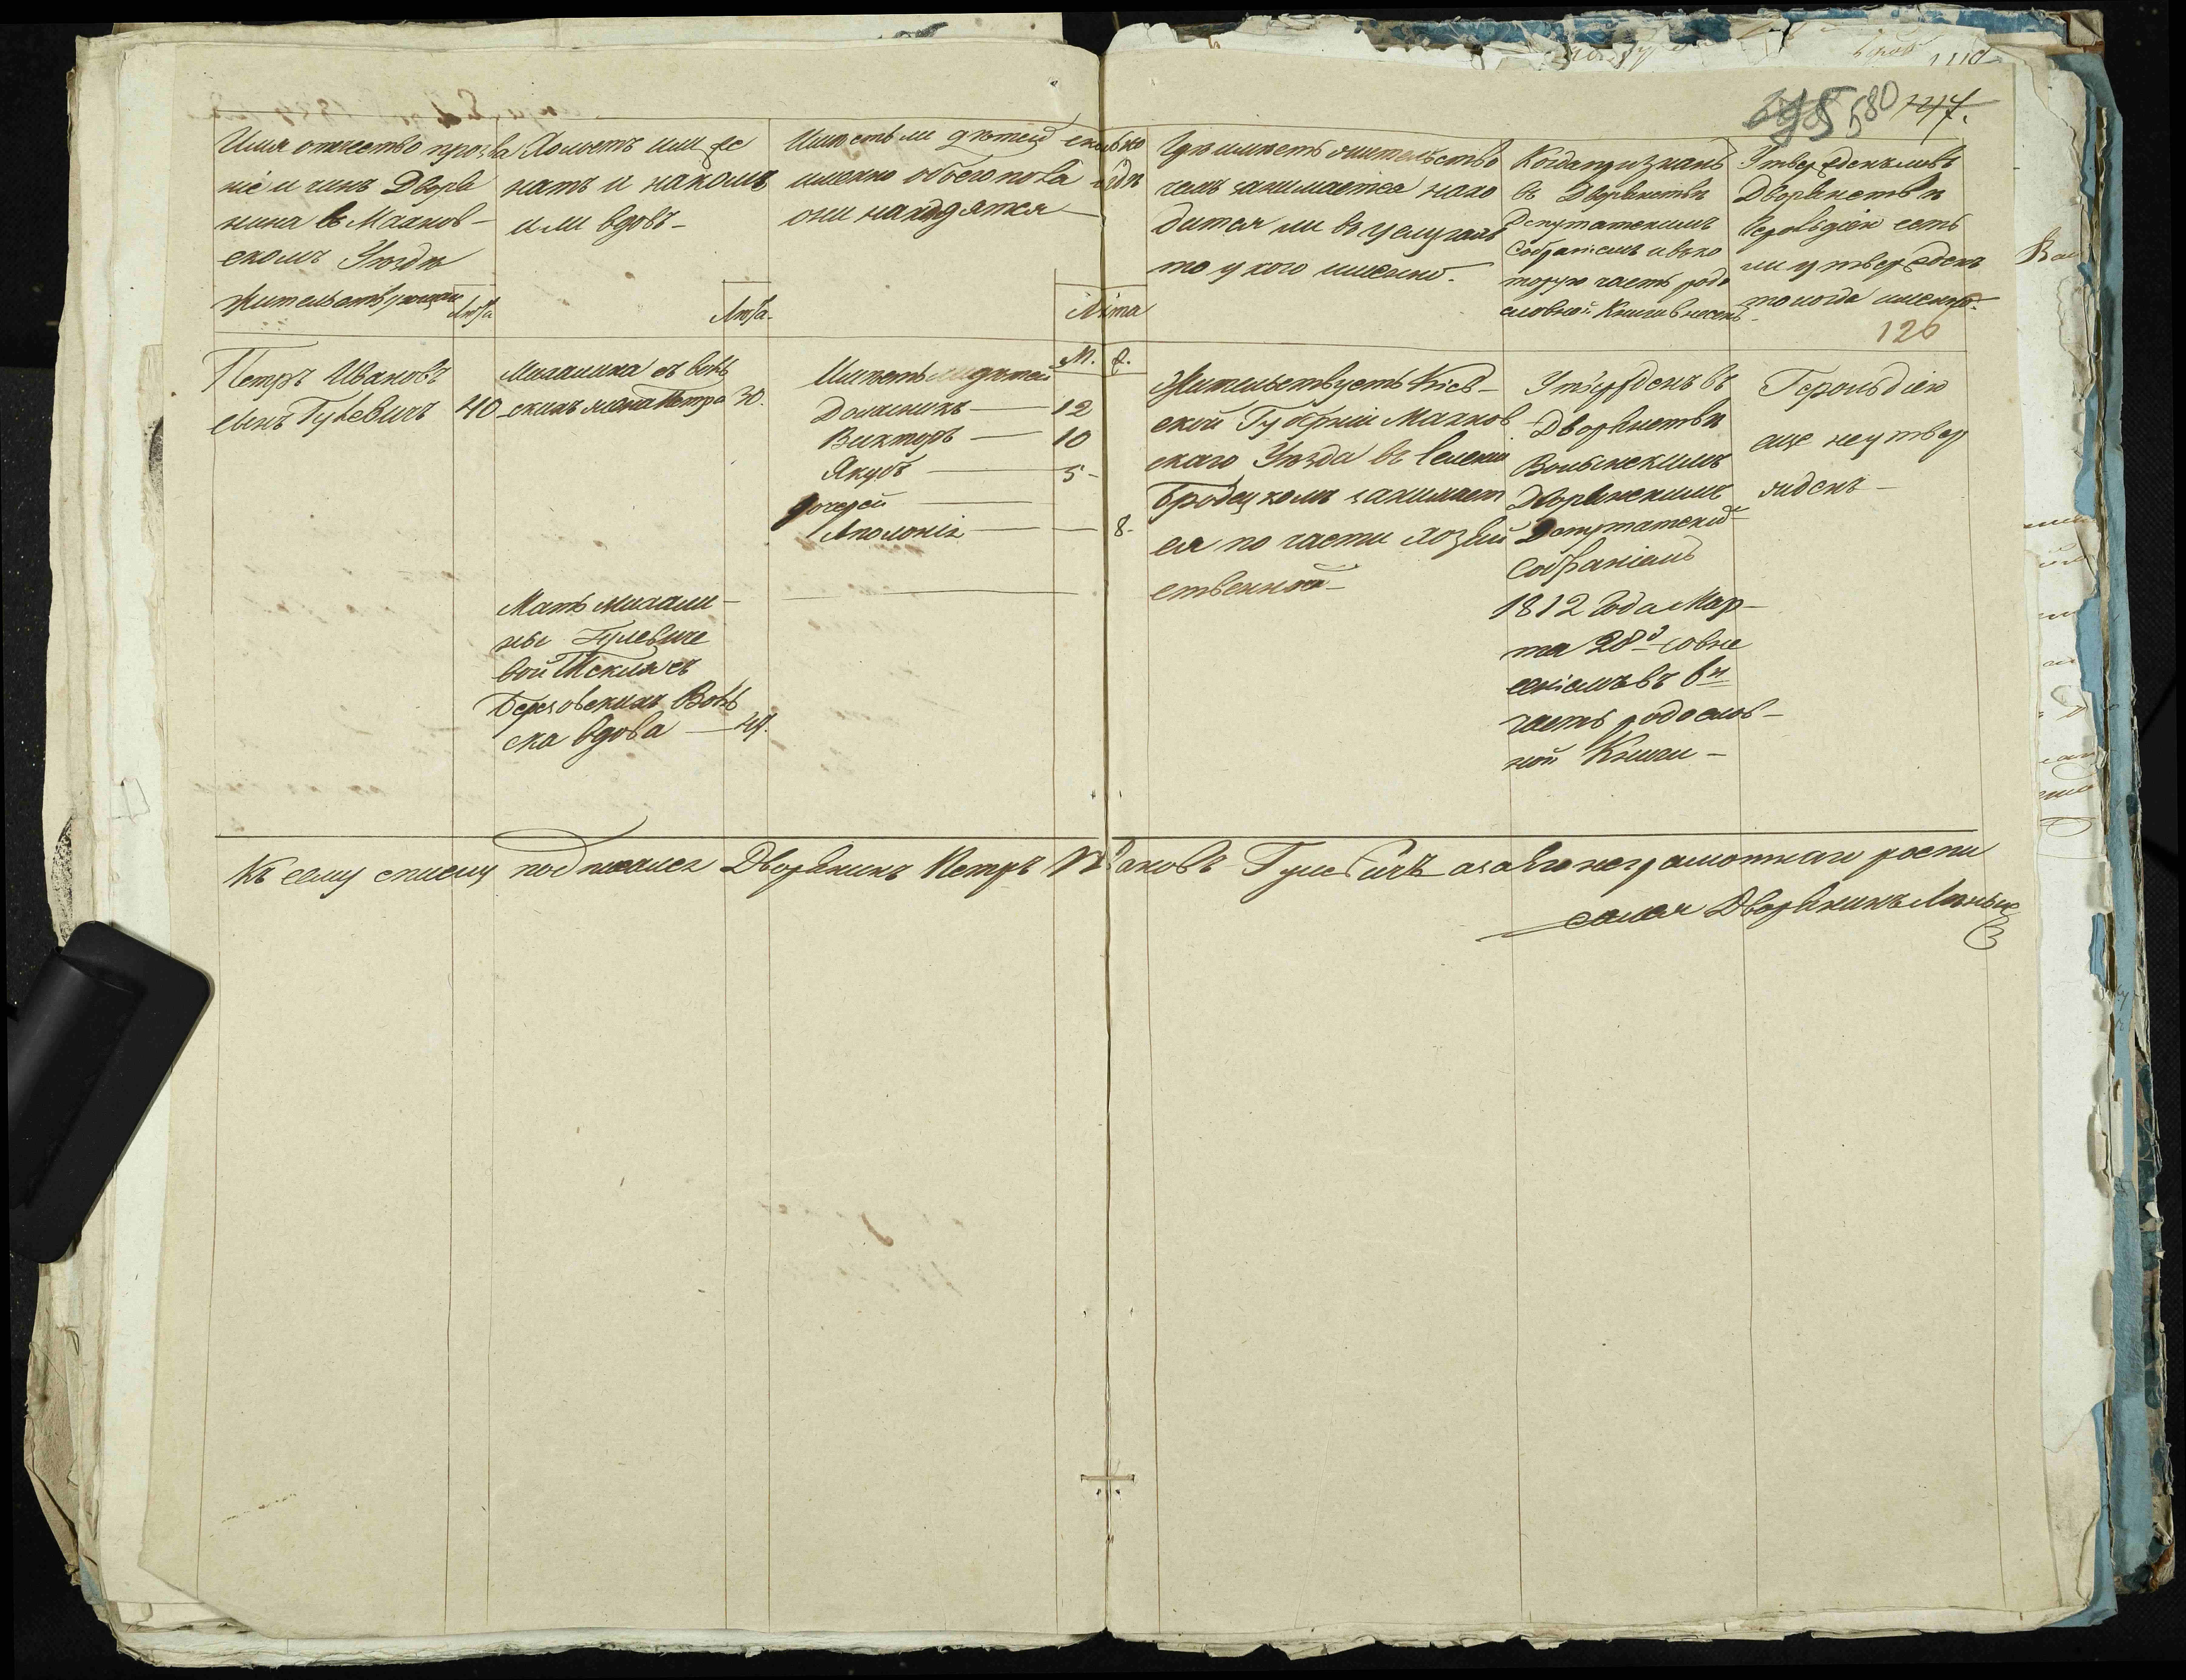 580
Имя отчество прозва
ніе и чинъ Дворя
нина въ Махнов-
скомъ Уѣздѣ
жительствующаго
Лѣта
Холостъ или же
натъ и на комъ
или вдовъ-
Лѣта.
Имѣетъ ли дѣтей сколько
именно обоего пола и гдѣ
они находятся
Лѣта
М. Ж.
Гдѣ имѣетъ жительство
чемъ занимается нахо
дится ли въ услугахъ
то у кого именно.
Когда признанъ
въ Дворянствѣ
Депутатскимъ
Собраніемъ и въ ко
торую часть родо
словной Книги внесенъ
Утвержденъ ли въ
Дворянствѣ
Герольдіею есть
ли утвержденъ
то когда именно.
126
Петръ Ивановъ
сынъ Гулевичъ 40
Михалина съ
скихъ жена Петра 30.
Имѣетъ дѣтей
Доминикъ — 12
Викторъ — 10
Якубъ — 5-
дочерей
Аполонія — 8-
Мать Михали-
ны Гулевиче
вой Текля съ
Березовскихъ
ска вдова — 49.
Жительствуетъ Кіев-
ской Губерніи Махнов
скаго Уѣзда въ Селеніи
Бродецкомъ занимает
ся по части хозяй
ственной-
Утвержденъ въ
Дворянствѣ
Волынскимъ
Дворянскимъ
Депутатскимъ
Собраніемъ
1812 Года Мар-
та 28д со вне
сеніемъ въ 6я
часть родослов-
ной Книги -
Герольдіею
еще не утвер
жденъ -
Къ сему списку подписался Дворянинъ Петръ Ивановъ Гулевичъ а за его неграмотнаго роспи
сался Дворянинъ